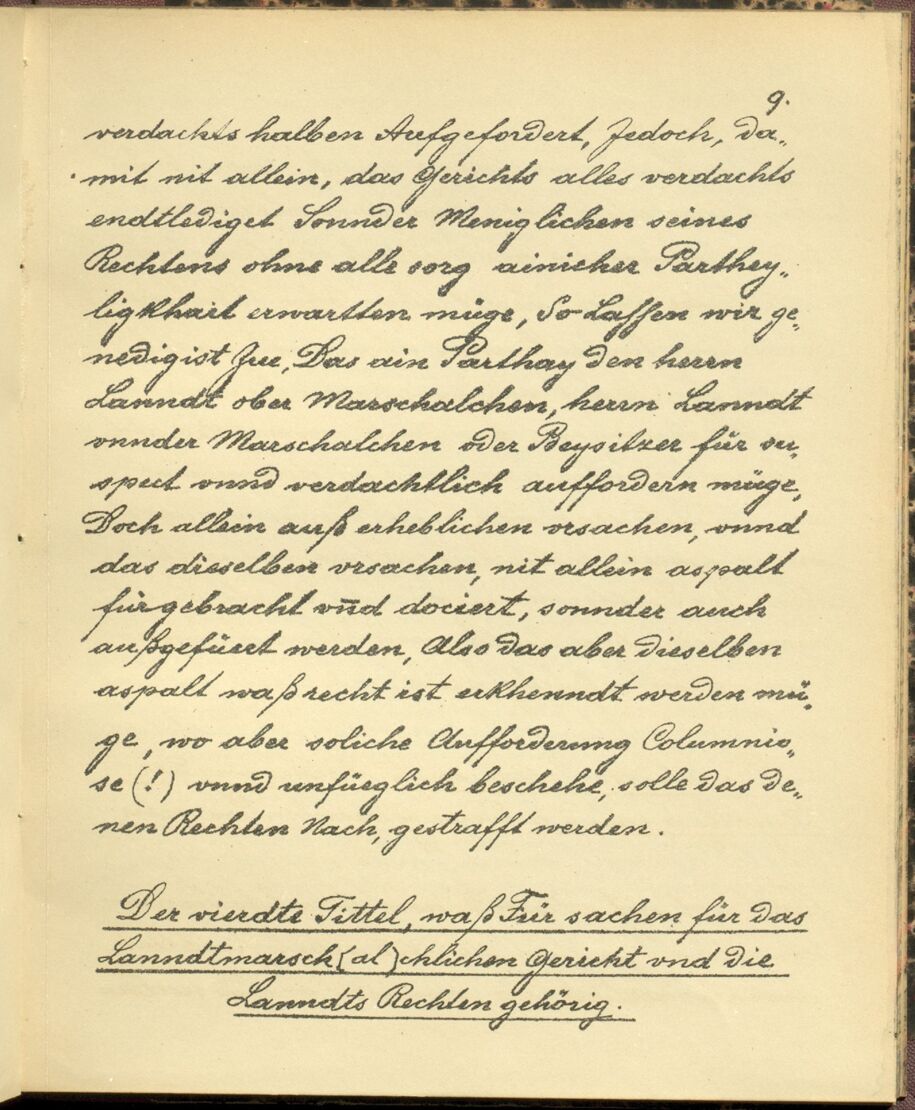 9.
verdachts halben Aufgefordert, Jedoch, da„
mit nit allein, das Gerichts alles verdachts
endtlediget Sonnder Meniglichen seines
Rechtens ohne alle sorg ainicher Parthey„
ligkhait erwartten müge, So Lassen wir ge„
nedigist Zue, Das ain Parthay den herrn
Lanndt ober Marschalchen, herrn Lanndt
vnnder Marschalchen oder Beysitzer für su„
spect vnnd verdachtlich auffordern müge,
Doch allein auß erheblichen vrsachen, vnnd
das dieselben vrsachen, nit allein aspalt
fürgebracht vn̄d dociert, sonnder auch
außgefüert werden, Also das aber dieselben
aspalt waß recht ist erkhenndt werden mü„
ge, wo aber soliche Aufforderung Columnio„
se (!) vnnd unfüeglich beschehe, solle das de„
nen Rechten Nach, gestrafft werden.
Der vierdte Tittel, waß Für sachen für das
Lanndtmarsch(al)chlichen Gericht vnd die
Lanndts Rechten gehörig.